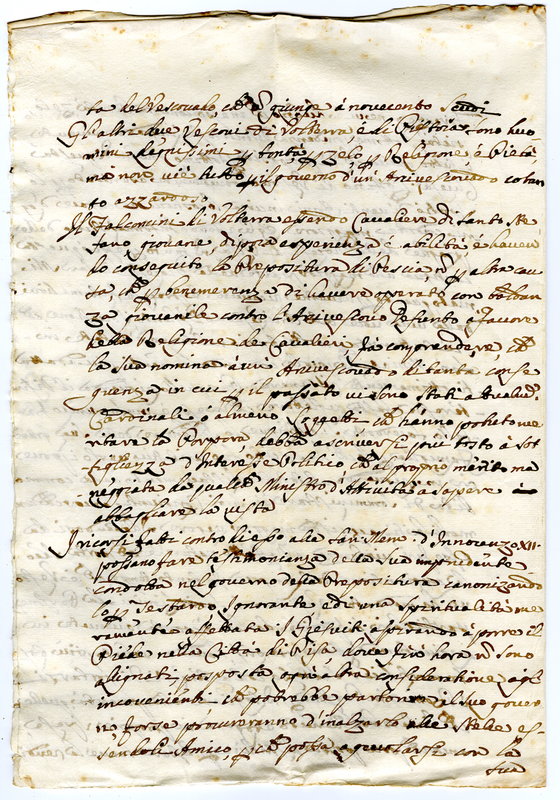 ta del Vescovado ch'e giunge à novecento scudi
Gl'altri due Vescovi di Volterra e di Pistoia sono huo
mini degnissimi p bontà, p zelo, p Religione e Pietà
ma non vi è tutto p il governo d'un Arcivescovado cotan
to azzardoso
Il Falconcini di Volterra essendo Cavaliere di Santo Ste
fano giovane, di poca esperienza é abilità, é haven
do conseguito la Prepositura di Pescia, n p altra cau
sa, che p benemerenza di havere operato con baldan
za giovanile contro l'Arcivescovo Defunto à favore
della Religione de Cavalieri Fà comprendere, ch
la sua nomina à un Arcivescovado di tanta conse
guenza in cui p il passato vi sono stati
Cardinali, ó almeno soggetti ch hánno potuto me
ritare la Porpora debba ascriversi più tosto à sot
tigliezza d'Interesse Politico ch al proprio mérito ma
neggiata da qualch Ministro d'Attività à sapere
abbagliare la vista
I ricorsi fatti contro di esso alla San: Mem. d'Innocenzo XII.
possano fare testimonianza della sua imprudente
condotta nel governo della Prepositura canonizando
lo p testardo Ignorante e di una spiritualità me
ramente affettata. I Gesuiti aspirando à porre il
Piede nella Città di Pisa dove fin hora n sono
allignati posposta ogni altra consideratione agl'
inconvenienti ch potrebbe partorire il suo gover
no, forse procuraranno d'inalzarlo alle Stelle es
sendoli Amico, p ch possa agevolarsi con la
sua